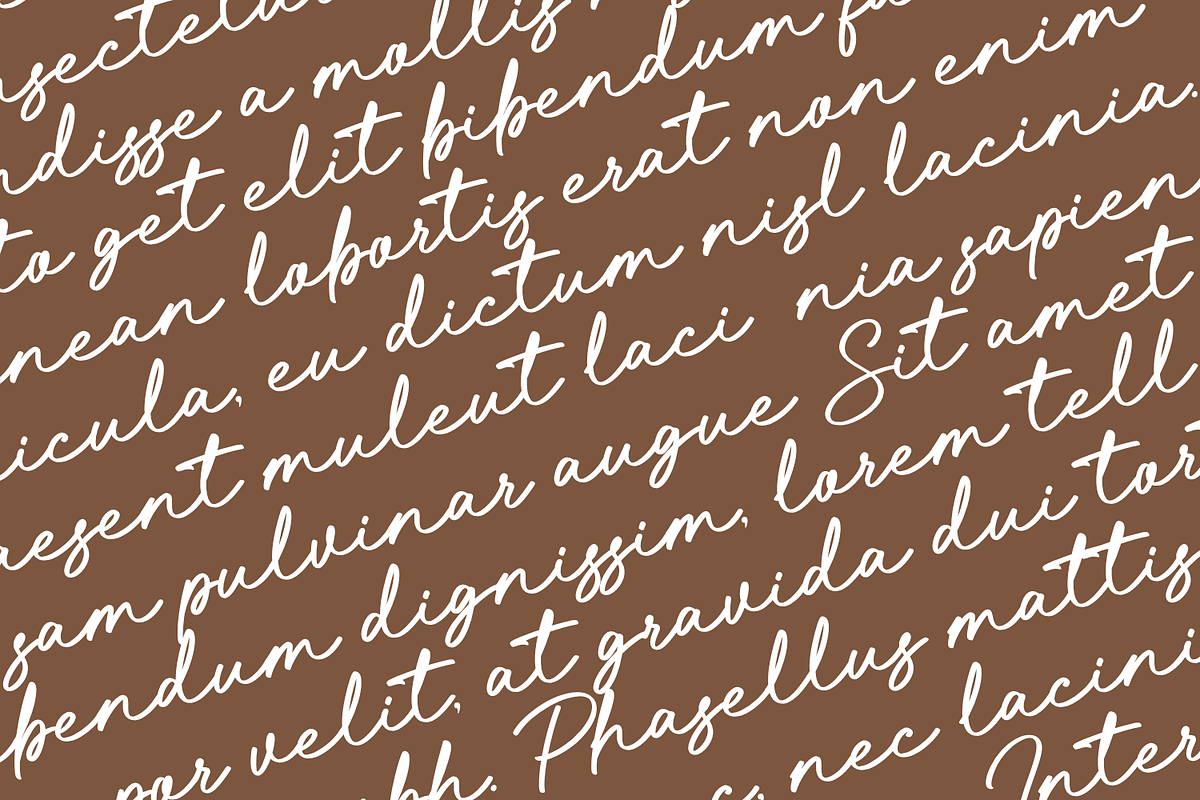 nsectetu
ndisse a mollis
to get elit bibendum fa
nean lobortis erat non enim
icula, eu dictum nisl lacinia.
aesent muleut laci nia sapien
sam pulvinar augue Sit amet
bendum dignissim, lorem tell
por velit, at gravida dui tor
bh. Phasellus mattis
c, nec lacini
Inter